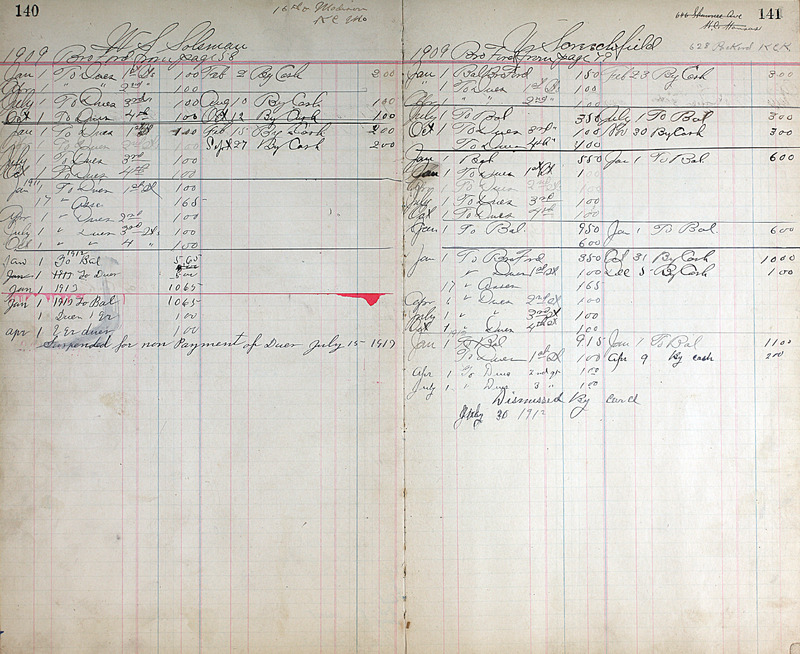 140
16th & Madison
K C Mo
W S Solsman
1909 Bro Frd From page 58
Jan 1 To Dues 1st Qr 100 Feb 2 By Cash 200
Apr " " " 2nd " 100
July 1 To Dues 3rd " 100 Aug 10 By Cash 100
Oct 1 To Dues 4th " 100 Oct 12 By Cash 100
Jan 1 To Dues 1st 100 Feb 15 By Cash 200
1 To Dues 2nd 100 Sept 27 By Cash 200
July 1 To Dues 3rd 100
Oct 1 To Dues 4th 100
Jan 1911 To Dues 1st Qr 100
17 " 165
Apr 1 " Dues 2nd 100
July 1 " Dues 3rd 100
Oct 1 " " 4 " 100
Jan 1 1912 To Bal 565
Jan 1 1913 To Dues
Jan 1 1913 1065
Jan 1 1913 To Bal 1065
1 Dues 1 Qr 100
apr 1 2 Qr dues 100
Suspended for non Payment of Dues July 15-1913
141
606 Shawnee Ave
628 Packard K.C.K
1909 Bro Frd From page 79
Jan 1 Bal Bro Frd 150 Feb 23 By Cash 300
" 1 To Dues 1st Qr 100
Apr " " 2nd " 100
July 1 To Bal 350 July 1 To Bal 300
Oct 1 To Dues 3rd " 100 30 By Cash 300
To Dues 4th " 100
Jan 1 Bal 550 Jan 1 To Bal 600
Jan 1 To Dues 1st Qr 100
1 To Dues 2nd 100
July 1 To Dues 3rd 100
Oct 1 To Dues 4th 100
Jan 1 To Bal 950 Jan 1 To Bal 600
600
Jan 1 To Bro Frd 350 Oct 31 By Cash 1000
" Dues 1st Qr 100 Dec 5 By Cash 100
17 " 165
Apr 1 " Dues 2nd Qr 100
July 1 " " 3rd Qr 100
Oct 1 " Dues 4th Qr 100
Jan 1 To Bal 915 Jan 1 To Bal 1100
To Dues 1st Qr 100 Apr 9 By cash 200
Apr 1 To Dues 2nd qr 100
July 1 " Dues 3 " 100
Dismissed By card
July 30 1912